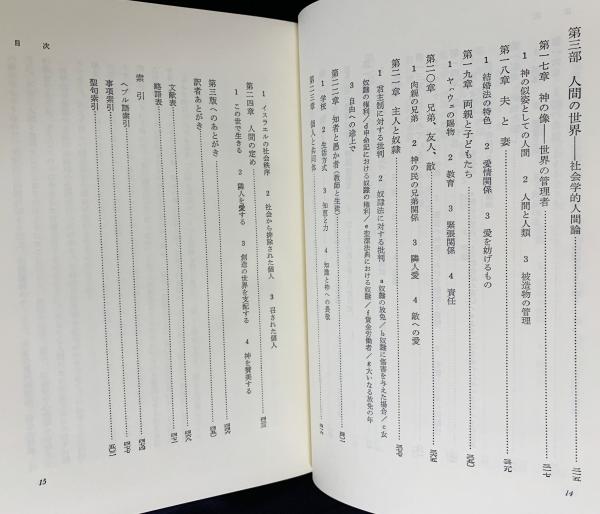 第三部 人間の世界――社会学的人間論
第一七章 神の像――世界の管理者
1 神の似姿としての人間 2 人間と人類 3 被造物の管理
第一八章 夫と妻
1 結婚法の特色 2 愛情関係 3 愛を妨げるもの
第一九章 両親と子どもたち
1 ヤハウェの賜物 2 教育 3 緊張関係 4 責任
第二〇章 兄弟、友人、敵
1 肉親の兄弟 2 神の民の兄弟関係 3 隣人愛 4 敵への愛
第二一章 主人と奴隷
1 君主制に対する批判 2 奴隷法に対する批判 a 奴隷の放免/b 奴隷に傷害を与えた場合/c 女
奴隷の権利/d 申命記における奴隷の権利/e 聖潔法典における奴隷/f 賃金労働者/g 大いなる放免の年
3 自由への途上で
第二二章 知者と愚か者(教師と生徒)
1 学校 2 生活方式 3 知恵と力 4 知識と神への畏敬
第二三章 個人と共同体
14
1 イスラエルの社会秩序 2 社会から排除された個人 3 召された個人
第二四章 人間の定め
1 この世で生きる 2 隣人を愛する 3 創造の世界を支配する 4 神を賛美する
第三版へのあとがき
訳者あとがき
文献表
略語表
索引
ヘブル語索引
事項索引
聖句索引
目次
15